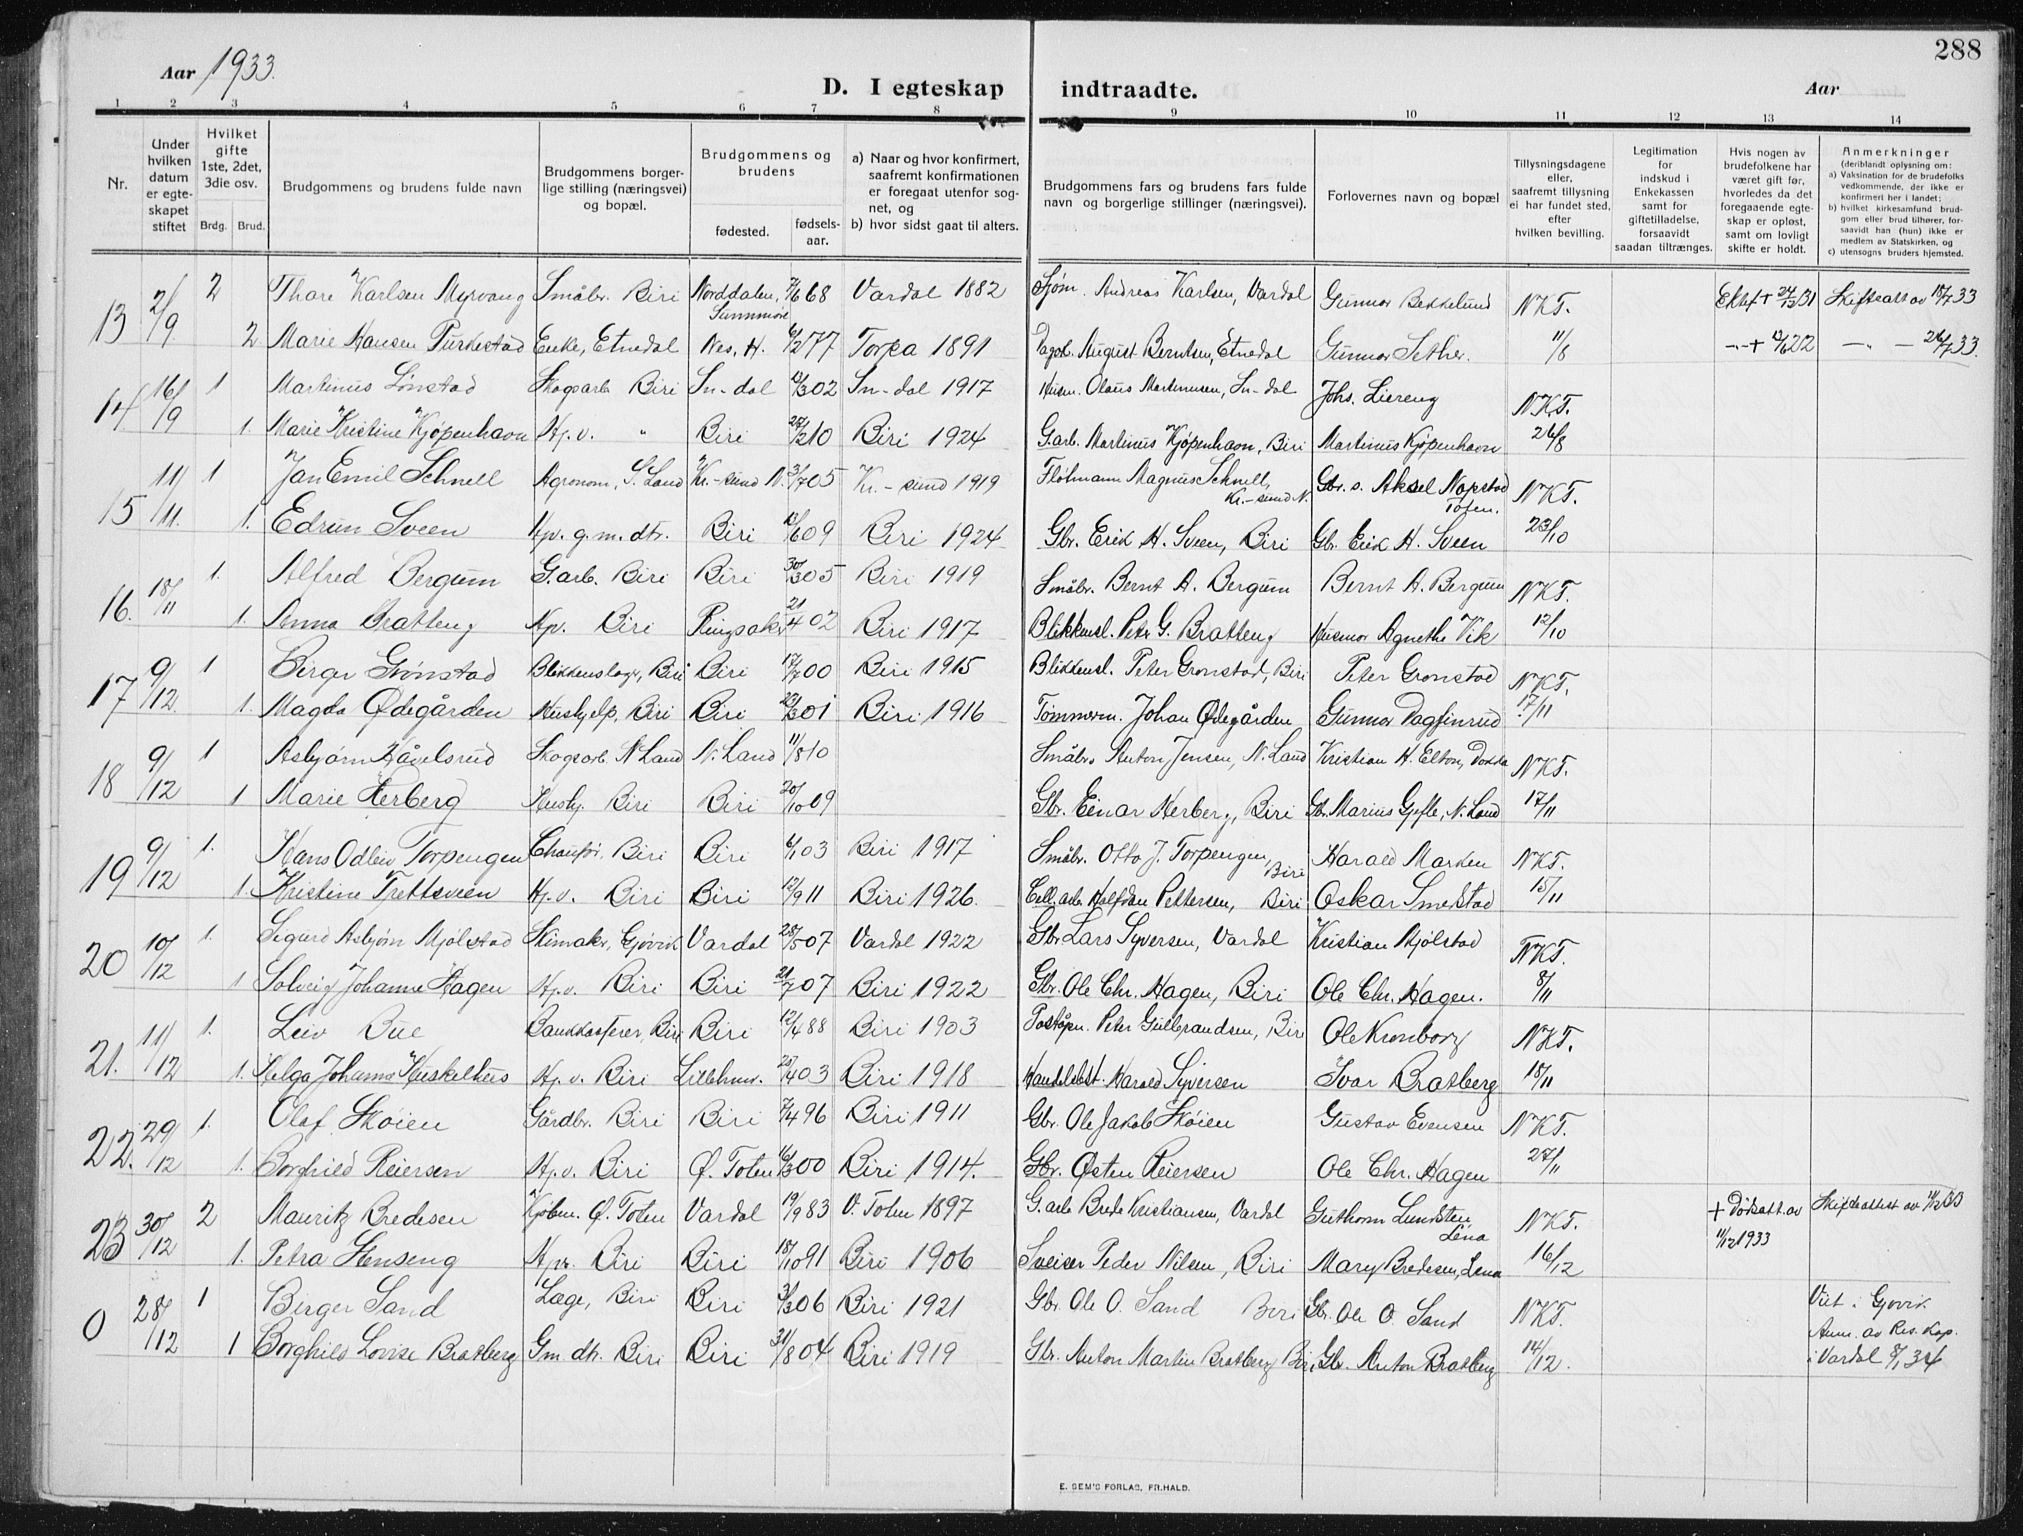 288
Aar 1933.
D. I egteskap indtraadte.
Aar
1 2 3 4 5 6 7 8 9 10 11 12 13 14
Nr.
Under hvilken datum er egteskapet stiftet
Hvilket gifte 1ste, 2det, 3die osv.
Brdg. Brud.
Brudgommens og brudens fulde navn
Brudgommens borgerlige stilling (næringsvei) og bopæl.
Brudgommens og brudens
fødested. fødselsaar.
a) Naar og hvor konfirmert, saafremt konfirmationen er foregaat utenfor sognet, og
b) hvor sidst gaat til alters.
Brudgommens fars og brudens fars fulde navn og borgerlige stillinger (næringsvei).
Forlovernes navn og bopæl
Tillysningsdagene eller, saafremt tillysning ei har fundet sted, efter hvilken bevilling.
Legitimation for indskud i Enkekassen samt for giftetilladelse, forsaavidt saadan tiltrænges.
Hvis nogen av brudefolkene har været gift før, hvorledes da det foregaaende egteskap er opløst, samt om lovligt skifte er holdt.
Anmerkninger
(deriblandt oplysning om:
a) Vaksination for de brudefolks vedkommende, der ikke er konfirmert her i landet;
b) hvilket kirkesamfund brudgom eller brud tilhører, forsaavidt han (hun) ikke er medlem av Statskirken, og
c) utensogns bruders hjemsted.
13 2/9 2 Thore Karlsen Myrvang Småbr. Biri Norddalen, Sunnmøre 7/6 68 Vardal 1882 Sjøm. Andreas Karlsen, Vardal Gunnar Bekkelund N.K.T. Ektef + 24/12 31 Skifteatt av 18/7 33
2 Marie Hansen Purkestad Enke, Etnedal Nes, H. 6/2 77 Torpa 1891 Dagarb. August Berntsen, Etnedal Gunnar Sether. 11/8 -"- + 12/6 22 -"- 26/7 33.
14 16/9 1 Martinus Lønstad Skogsarb. Biri Sn-dal 13/3 02 Sn-dal 1917 Husm. Olaus Martinusen, Sn-dal Johs. Liereng N.K.T.
1. Marie Kristine Kjøpenhavn Hj.v. " Biri 24/2 10 Biri 1924 G.arb. Martinus Kjøpenhavn, Biri Martinus Kjøpenhavn 26/8
15 11/11. 1 Jan Emil Schnell Agronom, S. Land Kr.-sund N. 3/7 05 Kr.-sund 1919 Fløtmann Magnus Schnell, Kr.-sund N. Gbr. s. Aksel Nøpstad Toten. N.K.T.
1. Edrun Sveen Hpv. g.m.dtr. Biri 13/6 09 Biri 1924 Gbr. Erik H. Sveen, Biri Gbr. Erik H. Sveen 23/10
16. 18/11 1. Alfred Bergum G.arb. Biri Biri 30/3 05 Biri 1919 Småbr. Bernt A. Bergum Bernt A. Bergum N.K.T.
1. Anna Bratteng Hp. Biri Ringsaker 21/4 02 Biri 1917 Blikkensl. Petr G. Bratteng Husmor Agnethe Vik 12/10
17 9/12. 1 Birger Grønstad Blikkenslagr, Biri Biri 17/7 00 Biri 1915 Blikkensl. Peter Grønstad, Biri Peter Grønstad N.K.T.
1. Magda Ødegården Hushjelp, Biri Biri 23/3 01 Biri 1916 Tømmerm. Johan Ødegården Gunnar Dagfinrud 17/11
18 9/12 1 Asbjørn Håvelsrud Skogsarb. N. Land N. Land 11/8 10 Småbr. Anton Jensen, N. Land Kristian H. Elton, Dokka N.K.T.
1 Marie Herberg Hushj. Biri Biri 20/10 09 Gbr. Einar Herberg, Biri Gbr. Marius Gjefle, N. Land 17/11
19 9/12 1. Hans Odleiv Torpengen Chaufør. Biri Biri 6/1 03 Biri 1917 Småbr. Otto J. Torpengen, Biri Harald Marken N.K.T.
1. Kristine Trettsveen Hj.v. Biri Biri 12/9 11 Biri 1926. Cell.arb. Halfdan Pettersen, Biri Oskar Smedstad 15/11
20 10/12 1. Sigurd Asbjørn Mjølstad Skimakr, Gjøvik Vardal 28/5 07 Vardal 1922 Gbr Lars Syversen, Vardal Kristian Mjølstad N.K.T.
1 Solveig Johanne Hagen Hj.v. Biri Biri 21/7 07 Biri 1922 Gbr. Ole Chr. Hagen, Biri Ole Chr. Hagen. 8/11
21. 11/12 1. Leiv Bue Bankkasserer, Biri Biri 12/4 88 Biri 1903 Poståpn. Peter Gulbrandsen, Biri Ole Kronborg N.K.T.
1. Helga Johanna Huskelhus Hj.v. Biri Lillehmr. 25/4 03 Biri 1918 Handelsbst. Harald Syversen Ivar Bratberg 18/11
22. 29/12 1. Olaf Skøien Gårdbr. Biri Biri 7/4 96 Biri 1911 Gbr. Ole Jakob Skøien Gustav Evensen N.K.T.
1. Borghild Reiersen Hj.v. Biri Ø. Toten 16/3 00 Biri 1914. Gbr. Østen Reiersen Ole Chr. Hagen 27/11
23 30/12 2 Mauritz Bredesen Kjøbm. Ø. Toten Vardal 19/9 83 V. Toten 1897 G.arb Brede Kristiansen, Vardal Guthorm Lundsten Lena N.K.T. + Dødsatt. av 11/12 1933 Skifteattest av 11/12 33
1. Petra Stenseng Hpv. Biri Biri 18/10 91 Biri 1906 Sveiser Peder Nilsen, Biri Mary Bredesen, Lena 16/12
0 28/12 1 Birger Sand Læge, Biri Biri 3/3 06 Biri 1921 Gbr. Ole O. Sand Biri Gbr. Ole O. Sand N.K.T. Viet i Gjøvik. Anm. av Res. Kap. i Vardal 8/1 34
1 Borghild Lovise Bratberg Gm. dtr. Biri Biri 31/8 04 Biri 1919 Gbr. Anton Martin Bratberg Biri, Gbr. Anton Bratberg 14/12.
E. SEM'S FORLAG, FR.HALD.